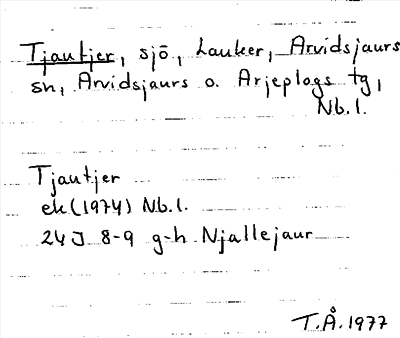 Tjautjer, sjö, Lauker, Arvidsjaurs
sn, Arvidsjaurs o. Arjeplogs tg,
Nb.l.
Tjautjer
ek (1974) Nb.l.
24J 8-9 g-h Njallejaur
T.Å. 1977